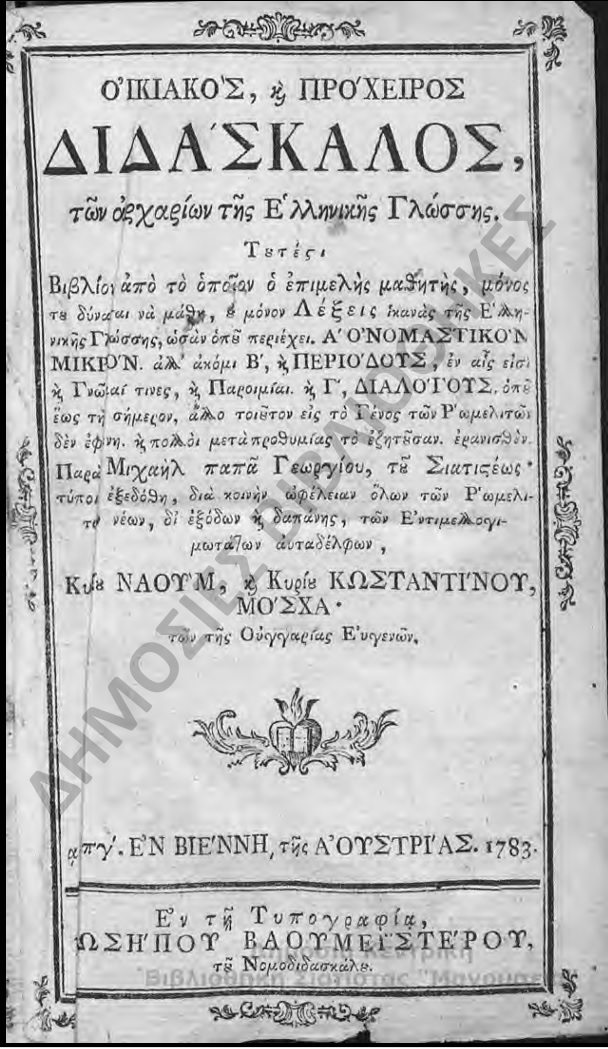 Ο᾿ΙΚΙΑΚΟ῾Σ, ϗ ΠΡΟ΄ΧΕΙΡΟΣ
ΔΙΔΑ΄ΣΚΑΛΟΣ,
τῶν ἀρχαρίων τῆς Ε῾λληνικῆς Γλώσσης.
Τȣτέςι
Βιβλίον ἀπὸ τὸ ὁποῖον ὁ ἐπιμελὴς μαθητὴς, μόνος
τȣ δύναται νὰ μάθῃ, ȣ μόνον Λέξεις ἱκανὰς τῆς Ε῾λλη-
νικῆς Γλώσσης, ὡσὰν ὁπȣ περιέχει. Α΄ ΟΝΟΜΑΣΤΙΚΟΝ
ΜΙΚΡΟ΄Ν. ἀλλ᾿ ἀκόμι Β΄, ϗ ΠΕΡΙΟ΄ΔΟΥΣ, ἐν αἷς εἰσὶ
ϗ Γνῶμαί τινες, ϗ Παροιμίαι. ϗ Γ΄, ΔΙΑΛΟ΄ΓΟΥΣ. ὁπȣ
ἕως τὴ σήμερον, ἄλλο τοιȣτον εἰς τὸ Γένος τῶν Ρ῾ωμελιτῶν
δὲν ἐφάνη. ϗ πολλοὶ μετὰ προθυμίας τὸ ἐζητȣσαν. ἐρανισθὲν
Παρὰ Μιχαὴλ παπᾶ Γεωργίου, τȣ͂ Σιατιςέως·
τύποις ἐξεδόθη, διὰ κοινὴν ὠφέλειαν ὅλων τῶν Ρ῾ωμελι-
τῶν νέων, δι᾿ ἐξόδων ϗ δαπάνης, τῶν Ε᾿ντιμελλογι-
μωτάτων αὐταδέλφων,
Κυρίȣ ΝΑΟΥ΄Μ, ϗ Κυρίȣ ΚΩΣΤΑΝΤΙ΄ΝΟΥ,
ΜΟ΄ΣΧΑ·
τῶν τῆς Οὐγγαρίας Εὐγενῶν.
͵αψπγ΄. Ε᾿Ν ΒΙΕ΄ΝΝΗ, τῆς Α᾿ΟΥΣΤΡΙ΄ΑΣ. 1783.
Ε᾿ν τῇ Τυπογραφίᾳ,
ΙΩΣΗ΄ΠΟΥ ΒΑΟΥΜΕΙΣΤΕ΄ΡΟΥ,
τȣ͂ Νομοδιδασκάλȣ.
ΔΗΜΟΣΙΕΣ ΒΙΒΛΙΟΘΗΚΕΣ
Κεντρική
Βιβλιοθήκη Σιάτιστας